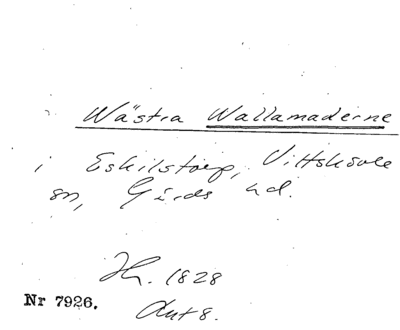 Wästra Wallamaderne
i Eskilstorp, Vittskövle
sn, Gärds hd.
Hr. 1828
Nr 7926.
Akt 8.